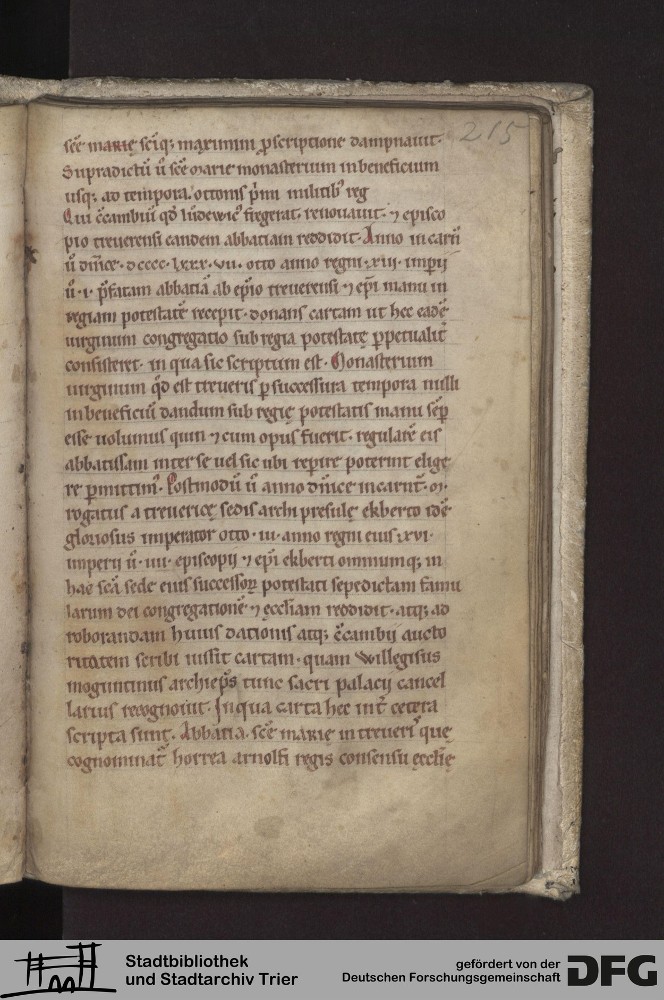 215
scē marię sciq; maximini p̱scriptione dampnauit·
Supradictū ū scē marie monasterium in beneficium
usq; ad tempora ottonis p̄mi militib᾽ reg
Qui c̄cambiū qd̄ ludewic᾽ fregerat, renouauit· ⁊ episco
pio treuerensi eandem abbatiam reddidit· Anno incarn̄
ū dn̄ice· dcccc· lxxx· vii· otto anno regni xiii· imperii
ū· i· p̄fatam abbatiā ab ep̄io treuerensi ⁊ ep̄i manu in
regiam potestatē recepit· donans cartam ut hec eadē
uirginum congregatio sub regia potestatę p̱petualit᾽
consisteret· in qua sic scriptum est· Monasterium
uirginum qd̄ est treueris p̱ successura tempora nulli
in beneficiū dandum sub regię potestatis manu sēp̱
esse uolumus quin ⁊ cum opus fuerit· regularē eis
abbatissam inter se uel sic ubi rep̱ire poterint elige
re p̱mittim᾽· Postmodū ū anno dn̄ice incarnat̄· m·
rogatus a treuericę sedis archipresulę ekberto idē
gloriosus imperator otto· iii· anno regni eius xvi·
imperii ū· iiii· episcopii ⁊ ep̄i ekberti omniumq; in
hac scā sede eius successoꝝ potestati sepedictam famu
larum dei congregationē ⁊ ęccl̄iam reddidit· atq; ad
roborandam huius dationis atq; c̄cambii aucto
ritatem scribi iussit cartam· quam Willegisus
moguntinus archiep̄s tunc sacri palacii cancel
larius recognouit· In qua carta hec int̄ cetera
scripta sunt· Abbatia scē marię in treueri᾽ quę
cognominat᾽ horrea arnolfi regis consensu ęccl̄ię
Stadtbibliothek
und Stadtarchiv Trier
gefördert von der
Deutschen Forschungsgemeinschaft
DFG